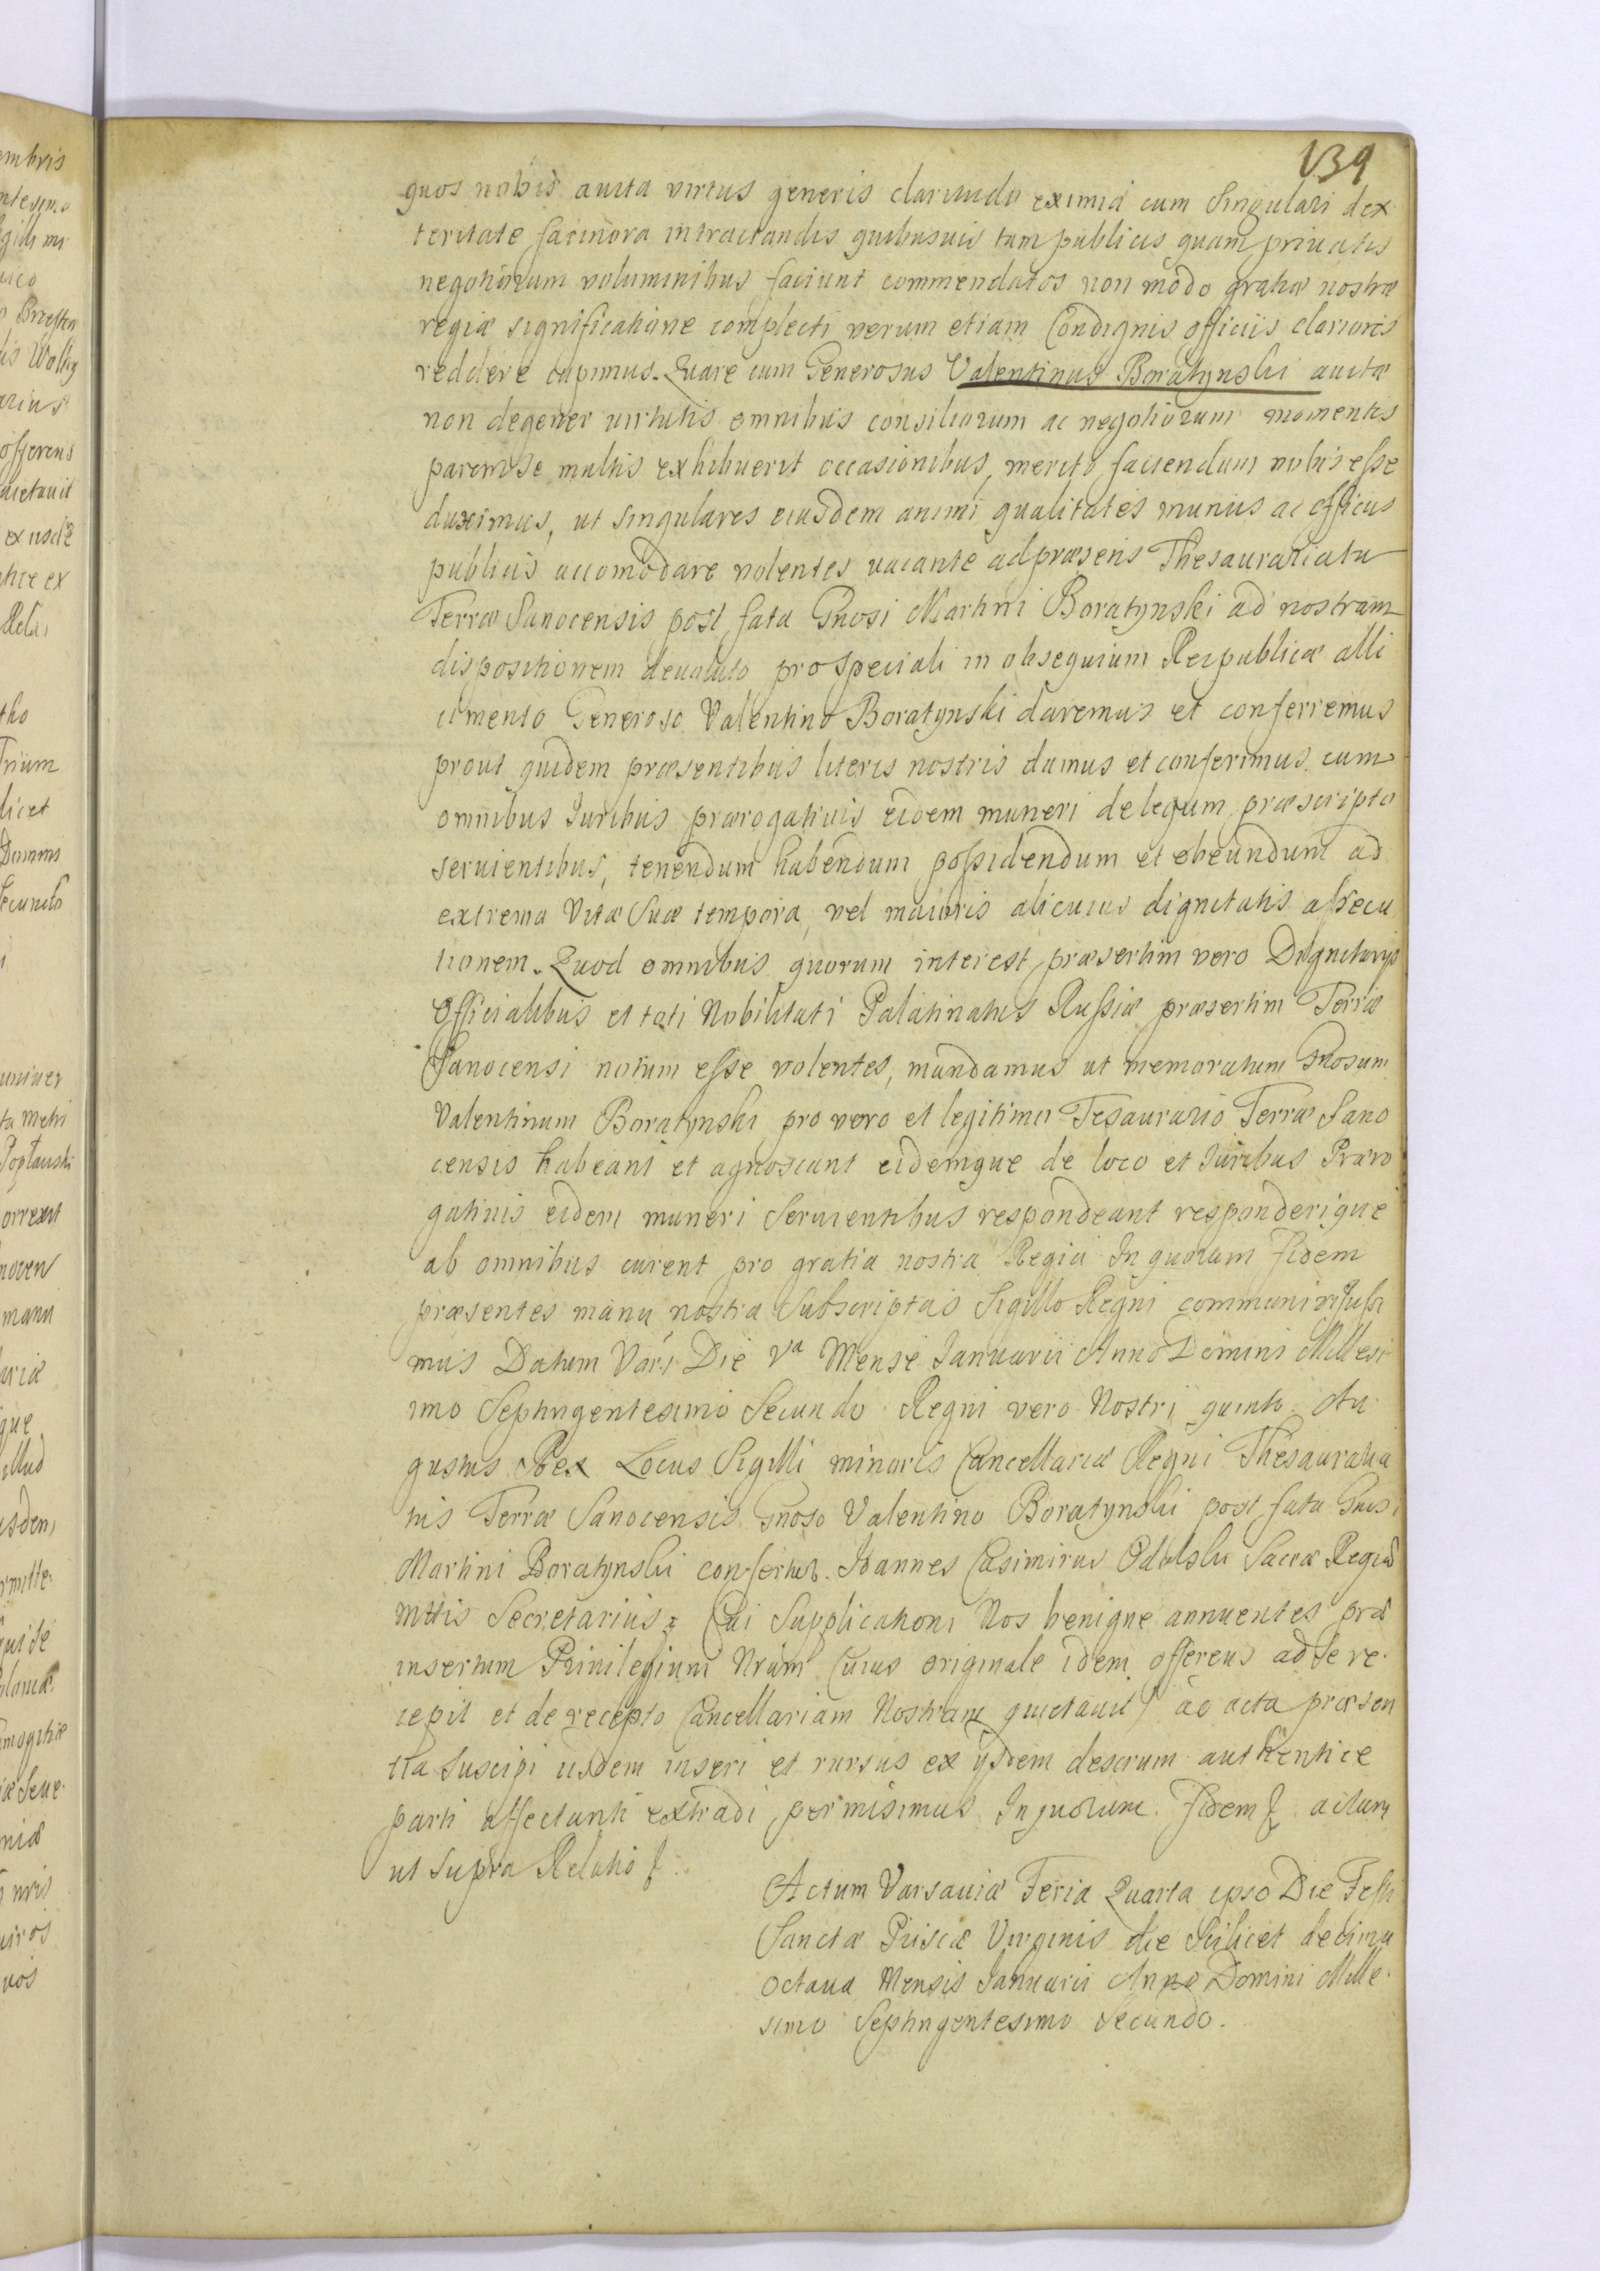 139
quos nobis auita virtus generis claritudo eximia cum Singulari dex
teritate facinora in tractandis quibusuis tam publicis quam priuatis
negotiorum voluminibus faciunt commendatos non modo gratiæ nostræ
regiæ significatione complecti verum etiam Condignis officiis clarioris
reddere cupimus. Quare cum Generosus Valentinus Boratynski auitæ
non degener virtutis omnibus consiliorum ac negotiorum momentis
parem se multis exhibuerit occasionibus, merito faciendum nobis esse
duximus, ut singulares eiusdem animi qualitates munius ac officus
publicis accomodare volentes vacante ad præsens Thesaurariatu
Terræ Sanocensis post fata Gnosi Martini Boratynski ad nostram
dispositionem deuoluto pro speciali in obsequium Reipublicæ alli
cimento Generoso Valentino Boratynski daremus et conferremus
prout quidem præsentibus literis nostris damus et conferimus cum
omnibus Iuribus prærogatiuis eidem muneri de legum præscripto
seruientibus, tenendum habendum possidendum et obeundum ad
extrema Vitæ Suæ tempora, vel maioris alicuius dignitatis assecu
tionem. Quod omnibus quorum interest præsertim vero Dignitarijs
Officialibus et toti Nobilitati Palatinatus Russiæ præsertim Terræ
Sanocensi notum esse volentes, mandamus ut memoratum Gnosum
Valentinum Boratynski pro vero et legitimo Tesaurario Terræ Sano
censis habeant et agnoscant eidemque de loco et Iuribus Præro
gatiuis eidem muneri Seruientibus respondeant responderique
ab omnibus curent pro gratia nostra Regia In quorum fidem
præsentes manu nostra Subscriptas Sigillo Regni communiri Jussi
mus Datum Vars Die Va Mense Ianuarii Anno Domini Millesi
imo Septingentesimo Secundo Regni vero Nostri quinto Au
gustus Rex Locus Sigilli minoris Cancellariæ Regni Thesauraria
tus Terræ Sanocensis Gnoso Valentino Boratynski post fata Gnosi
Martini Boratynski confertur. Ioannes Casimirus Sacræ Regiæ
Mttis Secretarius Cui Supplicationi Nos benigne annuentes præ
insertum Priuilegium Nrum Cuius originale idem offerens ad se re
cepit et de recepto Cancellariam Nostram quietauit ad acta præsen
tia Suscipi iisdem inseri et rursus ex ijsdem descrum authentice
parti affectanti extradi permisimus In quorum fidem actum
ut Supra Relatio
Actum Varsauiæ Feria Quarta ipso Die Festi
Sanctæ Priscæ Virginis die Scilicet decima
octaua Mensis Ianuarii Anno Domini Mille
simo Septingentesimo Secundo.